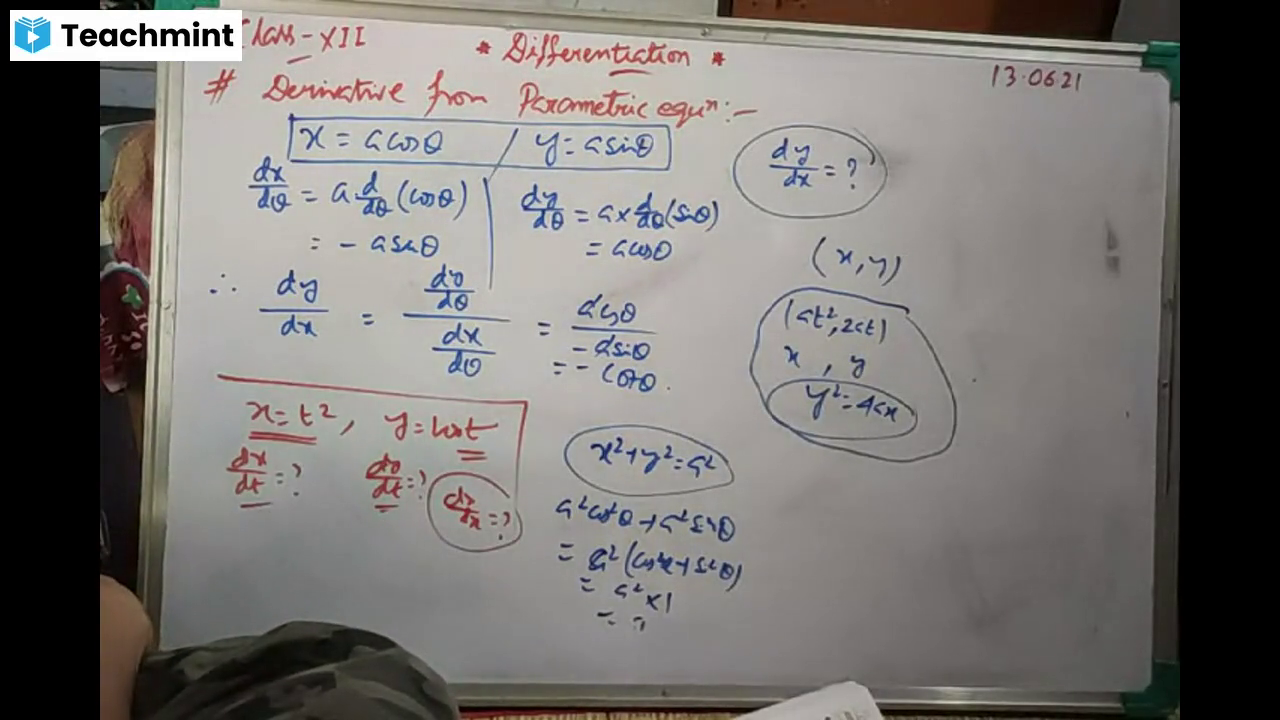 Teachmint
Class-XII
* Differentiation *
13.06.21
# Derivative from Parametric equⁿ:-
x = a cosθ / y = a sinθ
dy/dx = ?
dx/dθ = a d/dθ (cosθ)
= - a sinθ
dy/dθ = a x d/dθ (sinθ)
= a cosθ
∴ dy/dx = dy/dθ / dx/dθ = a cosθ / - a sinθ
= - cotθ.
(x, y)
(at², 2at)
x , y
y² = 4ax
x = t², y = cost
dx/dt = ?
dy/dt = ?
dy/dx = ?
x² + y² = a²
a² cos²θ + a² sin²θ
= a² (cos²x + sin²θ)
= a² x 1